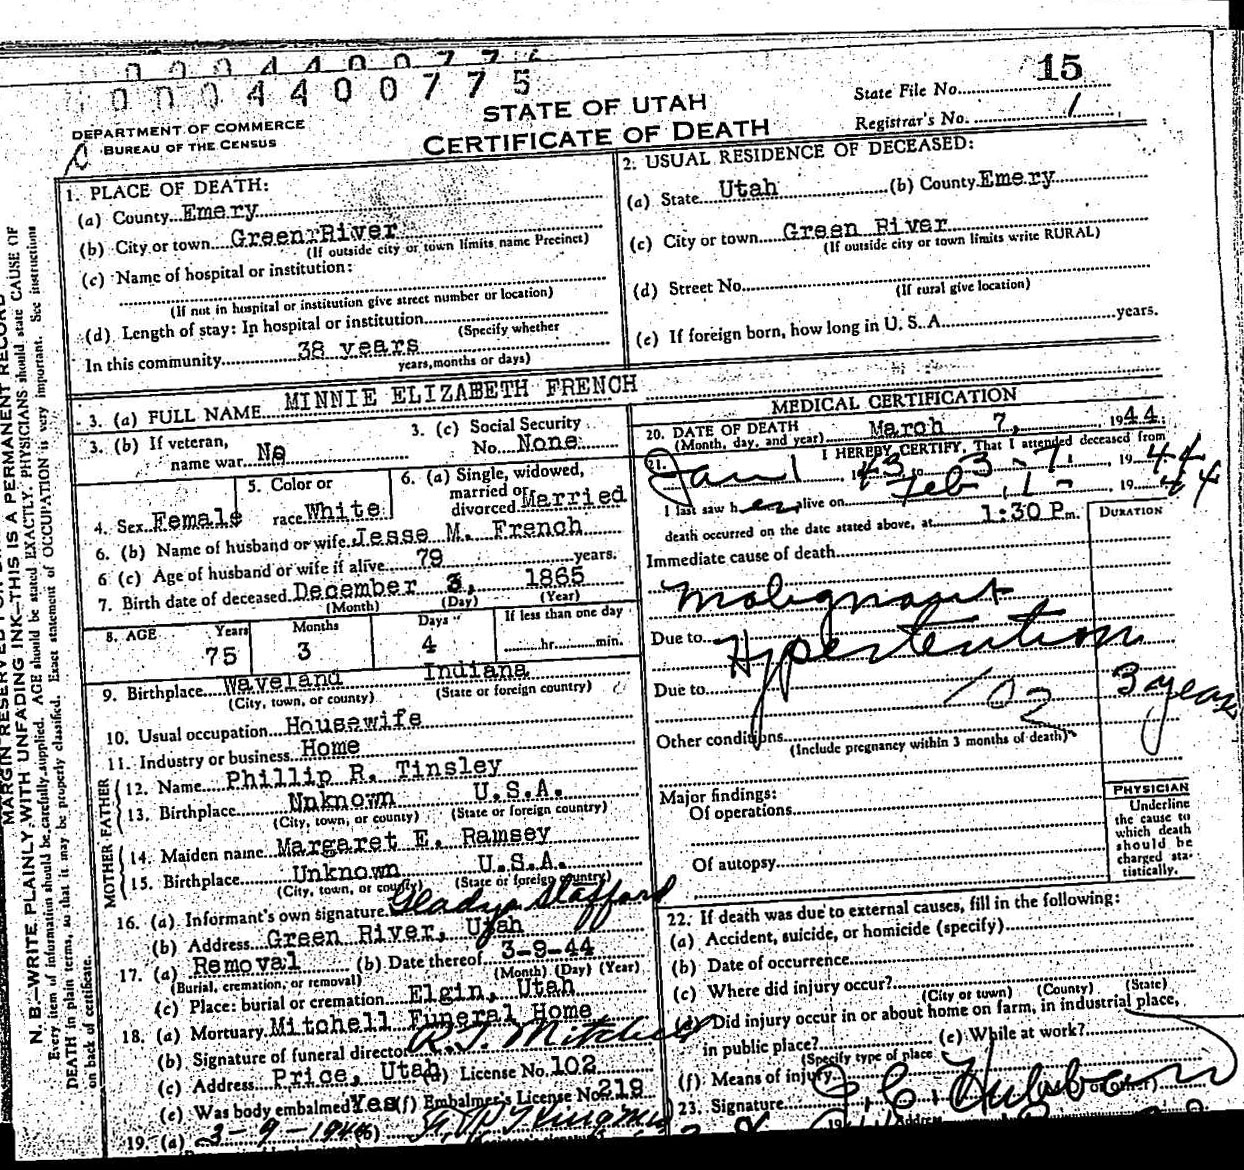 0004400775
STATE OF UTAH
CERTIFICATE OF DEATH
DEPARTMENT OF COMMERCE
BUREAU OF THE CENSUS
State File No. 15
Registrar's No. 1
1. PLACE OF DEATH:
(a) County Emery
(b) City or town Green River
(If outside city or town limits name Precinct)
(c) Name of hospital or institution:
(If not in hospital or institution give street number or location)
(d) Length of stay: In hospital or institution
(Specify whether
In this community 38 years
years, months or days)
2. USUAL RESIDENCE OF DECEASED:
(a) State Utah (b) County Emery
(c) City or town Green River
(If outside city or town limits write RURAL)
(d) Street No.
(If rural give location)
(e) If foreign born, how long in U. S. A. years.
3. (a) FULL NAME MINNIE ELIZABETH FRENCH
3. (b) If veteran,
name war No
3. (c) Social Security
No. None
4. Sex Female
5. Color or
race White
6. (a) Single, widowed,
married or
divorced Married
6. (b) Name of husband or wife Jesse M. French
6 (c) Age of husband or wife if alive 79 years.
7. Birth date of deceased December 3, 1865
(Month) (Day) (Year)
8. AGE Years Months Days If less than one day
75 3 4 hr. min.
9. Birthplace Waveland Indiana
(City, town, or county) (State or foreign country)
10. Usual occupation Housewife
11. Industry or business Home
MOTHER FATHER
12. Name Phillip R. Tinsley
13. Birthplace Unknown U.S.A.
(City, town, or county) (State or foreign country)
14. Maiden name Margaret E. Ramsey
15. Birthplace Unknown U.S.A.
(City, town, or county) (State or foreign country)
16. (a) Informant's own signature Gladys Stafford
(b) Address Green River, Utah
17. (a) Removal (b) Date thereof 3-9-44
(Burial, cremation, or removal) (Month) (Day) (Year)
(c) Place: burial or cremation Elgin, Utah
18. (a) Mortuary Mitchell Funeral Home
(b) Signature of funeral director R. J. Mitchell
(c) Address Price, Utah (d) License No. 102
(e) Was body embalmed Yes (f) Embalmer's License No. 219
19. (a) 3-9-1944 (b)
MEDICAL CERTIFICATION
20. DATE OF DEATH March 7, 1944
(Month, day, and year)
21. I HEREBY CERTIFY, That I attended deceased from
Jan 1, 1943 to 3-7, 1944
I last saw her alive on Feb 1-, 1944
death occurred on the date stated above, at 1:30 P.m.
DURATION
Immediate cause of death
Malignant
Due to Hypertention
Due to 102 3 years
Other conditions
(Include pregnancy within 3 months of death)
Major findings:
Of operations
Of autopsy
PHYSICIAN
Underline
the cause to
which death
should be
charged sta-
tistically.
22. If death was due to external causes, fill in the following:
(a) Accident, suicide, or homicide (specify)
(b) Date of occurrence
(c) Where did injury occur?
(City or town) (County) (State)
(d) Did injury occur in or about home on farm, in industrial place,
in public place? (e) While at work?
(Specify type of place
(f) Means of injury
23. Signature
Address
MARGIN RESERVED
N. B.—WRITE PLAINLY WITH UNFADING INK—THIS IS A PERMANENT RECORD
Every item of information should be carefully supplied. AGE should be stated EXACTLY. PHYSICIANS should state CAUSE OF
DEATH in plain terms, so that it may be properly classified. Exact statement of OCCUPATION is very important. See instructions
on back of certificate.